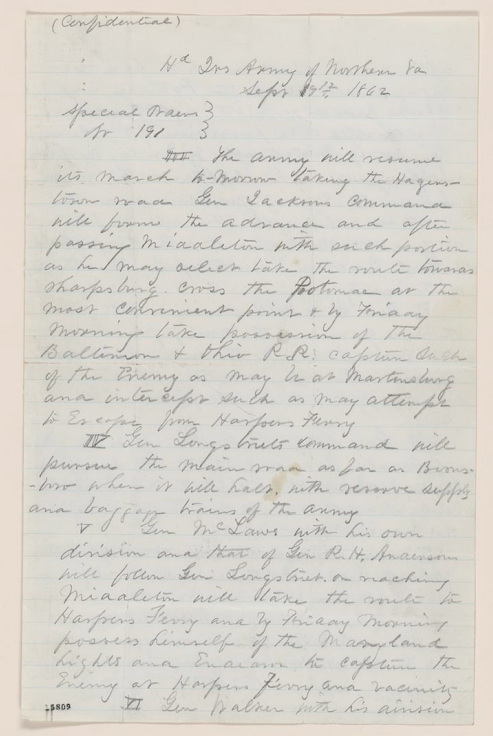 (Confidential)
Hd Qrs Army of Northern Va
Sept 9th 1862
Special Orders }
No 191 }
III The Army will resume
its march to-morrow taking the Hagers-
town road Gen Jacksons Command
will form the advance and after
passing Middleton with such portion
as he may select take the route towars
Sharpsburg cross the Potomac at the
most convenient point & by Friday
Morning take possession of the
Baltimore & Ohio R.R. capture such
of the Enemy as may be at Martinsburg
and intercept such as may attempt
to Escape from Harpers Ferry
IV Gen Longstreets command will
pursue the main road as far as Boons-
-boro where it will halt, with reserve supply
and baggage trains of the army
V Gen McLaws with his own
division and that of Gen R. H. Anderson
will follow Gen Longstreet. on reaching
Middleton will take the route to
Harpers Ferry and by Friday Morning
possess himself of the Maryland
hights and Endeavor to capture the
Enemy at Harpers Ferry and vacinity
VI Gen Walker with his division
15809